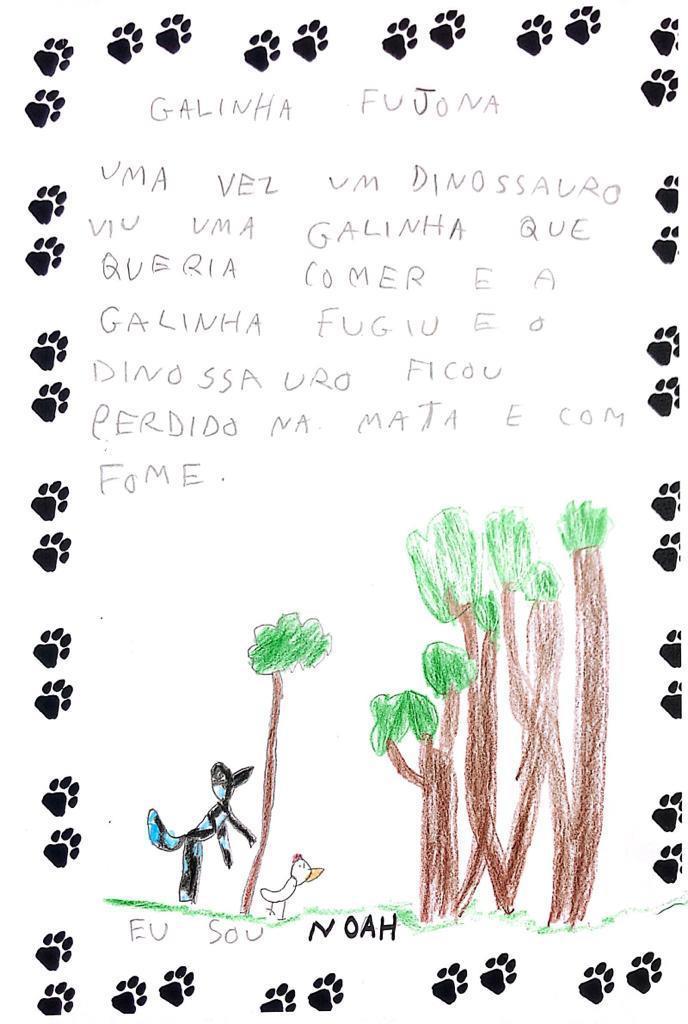 GALINHA FUJONA
UMA VEZ UM DINOSSAURO
VIU UMA GALINHA QUE
QUERIA COMER E A
GALINHA FUGIU E O
DINOSSAURO FICOU
PERDIDO NA MATA E COM
FOME.
EU SOU NOAH